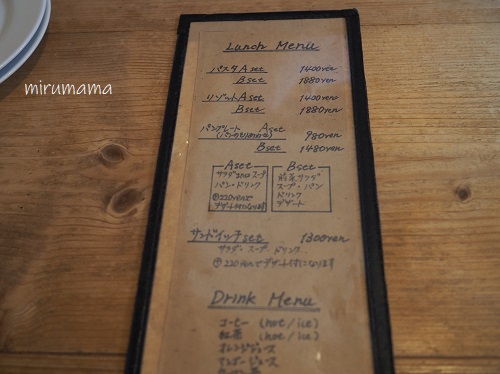 mirumama
Lunch Menu
パスタ Aset 1400yen
Bset 1880yen
リゾット Aset 1400yen
Bset 1880yen
パンプレート Aset 980yen
Bset 1480yen
Aset
サラダ スープ
パン・ドリンク
⊕220yenで
デザート付になります
Bset
前菜サラダ
スープ・パン
ドリンク
デザート
サンドイッチset 1300yen
サラダ・スープ ドリンク
⊕220yenでデザート付になります
Drink Menu
コーヒー (hot/ice)
紅茶 (hot/ice)
オレンジジュース
ジュース